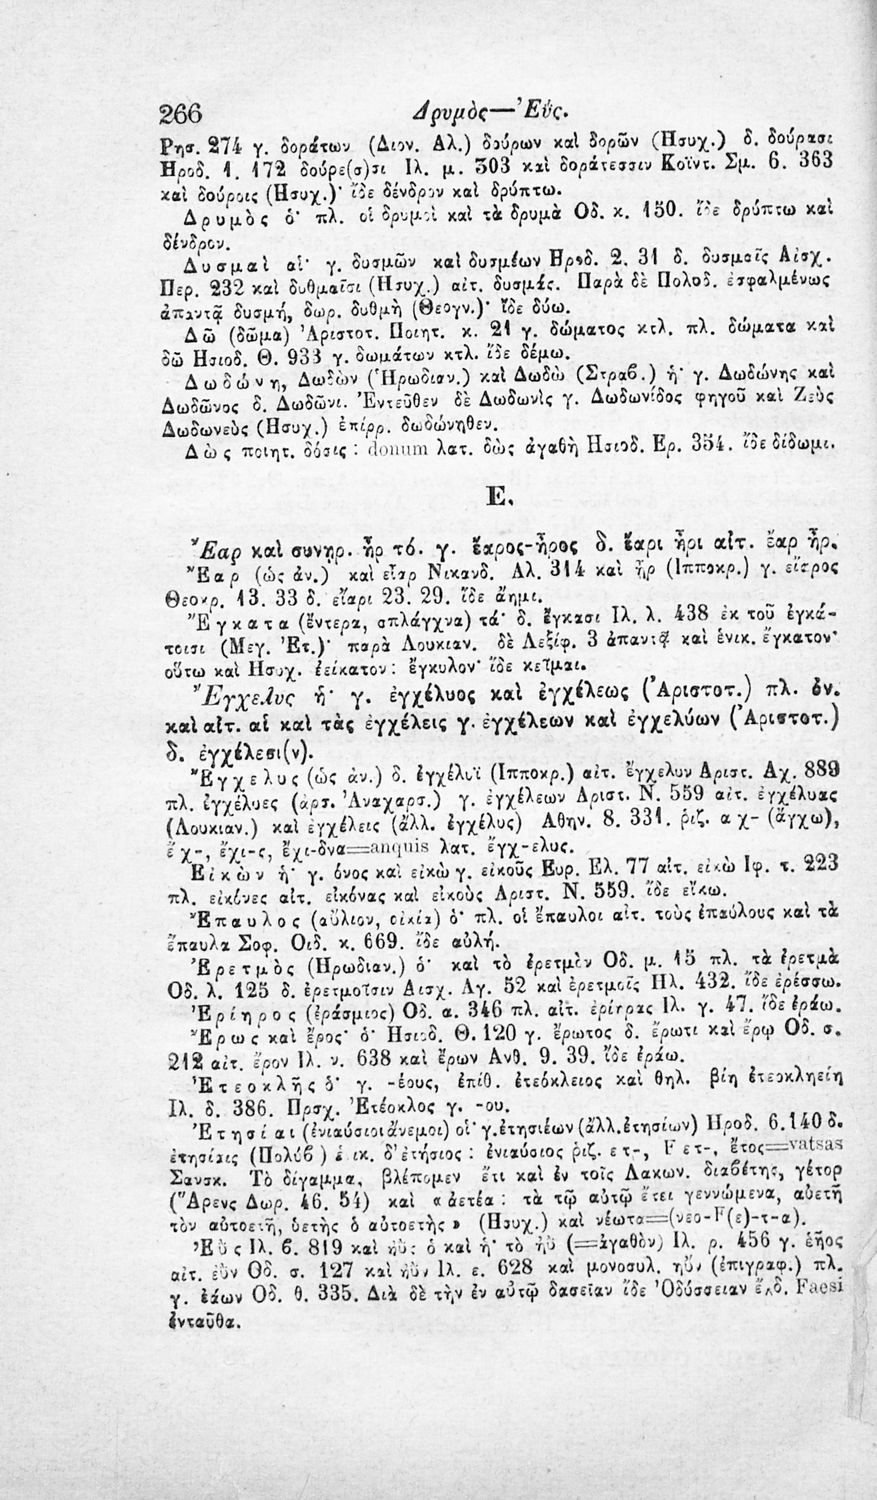 266
Δρυμὸς—Ἐΰς.
Ρησ. 274 γ. δοράτων (Διον. Αλ.) δούρων καὶ δορῶν (Ησυχ.) δ. δούρασι
Ηροδ. 1. 172 δούρε(σ)σι Ιλ. μ. 303 καὶ δοράτεσσιν Κοϊντ. Σμ. 6. 363
καὶ δούροις (Ησυχ.)· ἴδε δένδρον καὶ δρύπτω.
Δρυμὸς ὁ· πλ. οἱ δρυμοὶ καὶ τὰ δρυμὰ Οδ. κ. 150. ἴδε δρύπτω καὶ
δένδρον.
Δυσμαὶ αἱ· γ. δυσμῶν καὶ δυσμέων Ηροδ. 2. 31 δ. δυσμαῖς Αἰσχ.
Περ. 232 καὶ δυθμαῖσι (Ησυχ.) αἰτ. δυσμάς. Παρὰ δὲ Πολυδ. ἐσφαλμένως
ἀπαντᾷ δυσμή, δωρ. δυθμὴ (Θεογν.)· ἴδε δύω.
Δῶ (δῶμα) Ἀριστοτ. Ποιητ. κ. 21 γ. δώματος κτλ. πλ. δώματα καὶ
δῶ Ησιοδ. Θ. 933 γ. δωμάτων κτλ. ἴδε δέμω.
Δωδώνη, Δωδὼν (Ἡρωδιαν.) καὶ Δωδὼ (Στραβ.) ἡ· γ. Δωδώνης καὶ
Δωδῶνος δ. Δωδῶνι. Ἐντεῦθεν δὲ Δωδωνὶς γ. Δωδωνίδος φηγοῦ καὶ Ζεὺς
Δωδωνεὺς (Ησυχ.) ἐπίρρ. δωδώνηθεν.
Δὼς ποιητ. δόσις : donum λατ. δὼς ἀγαθὴ Ησιοδ. Ερ. 354. ἴδε δίδωμι.
Ε.
Ἔαρ καὶ συνῃρ. ἦρ τό. γ. ἔαρος-ἦρος δ. ἔαρι ἦρι αἰτ. ἔαρ ἦρ.
Ἔαρ (ὡς ἀν.) καὶ εἶαρ Νικανδ. Αλ. 314 καὶ ἦρ (Ιπποκρ.) γ. εἴαρος
Θεοκρ. 13. 33 δ. εἴαρι 23. 29. ἴδε ἄημι.
Ἔγκατα (ἔντερα, σπλάγχνα) τά· δ. ἔγκασι Ιλ. λ. 438 ἐκ τοῦ ἐγκά-
τοισι (Μεγ. Ἐτ.)· παρὰ Λουκιαν. δὲ Λεξίφ. 3 ἀπαντᾷ καὶ ἑνικ. ἔγκατον·
οὕτω καὶ Ησυχ. ἐείκατον: ἔγκυλον· ἴδε κεῖμαι.
Ἔγχελυς ἡ· γ. ἐγχέλυος καὶ ἐγχέλεως (Ἀριστοτ.) πλ. ὀν.
καὶ αἰτ. αἱ καὶ τὰς ἐγχέλεις γ. ἐγχέλεων καὶ ἐγχελύων (Ἀριστοτ.)
δ. ἐγχέλεσι(ν).
Ἔγχελυς (ὡς ἀν.) δ. ἐγχέλυϊ (Ιπποκρ.) αἰτ. ἔγχελυν Αριστ. Αχ. 889
πλ. ἐγχέλυες (ἀρσ. Ἀναχαρσ.) γ. ἐγχέλεων Αριστ. Ν. 559 αἰτ. ἐγχέλυας
(Λουκιαν.) καὶ ἐγχέλεις (ἄλλ. ἐγχέλυς) Αθην. 8. 331. ῥιζ. αχ- (ἄγχω),
ἐχ-, ἔχι-ς, ἔχι-δνα=anquis λατ. ἔγχ-ελυς.
Εἰκὼν ἡ· γ. όνος καὶ εἰκὼ γ. εἰκοῦς Ευρ. Ελ. 77 αἰτ. εἰκὼ Ιφ. τ. 223
πλ. εἰκόνες αἰτ. εἰκόνας καὶ εἰκοὺς Αριστ. Ν. 559. ἴδε εἴκω.
Ἔπαυλος (αὔλιον, οἰκία) ὁ· πλ. οἱ ἔπαυλοι αἰτ. τοὺς ἐπαύλους καὶ τὰ
ἔπαυλα Σοφ. Οιδ. κ. 669. ἴδε αὐλή.
Ἐρετμὸς (Ηρωδιαν.) ὁ· καὶ τὸ ἐρετμὸν Οδ. μ. 15 πλ. τὰ ἐρετμὰ
Οδ. λ. 125 δ. ἐρετμοῖσιν Αισχ. Αγ. 52 καὶ ἐρετμοῖς Ηλ. 432. ἴδε ἐρέσσω.
Ἐρίηρος (ἐράσμιος) Οδ. α. 346 πλ. αἰτ. ἐρίηρας Ιλ. γ. 47. ἴδε ἐράω.
Ἔρως καὶ ἔρος· ὁ· Ησιοδ. Θ. 120 γ. ἔρωτος δ. ἔρωτι καὶ ἔρῳ Οδ. σ.
212 αἰτ. ἔρον Ιλ. ν. 638 καὶ ἔρων Ανθ. 9. 39. ἴδε ἐράω.
Ἐτεοκλῆς ὁ· γ. -έους, ἐπίθ. ἐτεόκλειος καὶ θηλ. βίη ἐτεοκληείη
Ιλ. δ. 386. Πρσχ. Ἐτέοκλος γ. -ου.
Ἐτησίαι (ἐνιαύσιοι ἄνεμοι) οἱ· γ. ἐτησιέων (ἄλλ. ἐτησίων) Ηροδ. 6. 140 δ.
ἐτησίαις (Πολύβ) ἑνικ. δ' ἐτήσιος : ἐνιαύσιος ῥιζ. ετ-, Fετ-, ἔτος=vatsas
Σανσκ. Τὸ δίγαμμα, βλέπομεν ἔτι καὶ ἐν τοῖς Λακων. διαβέτης, γέτορ
(Ἄρενς Δωρ. 46. 54) καὶ «ἀετέα : τὰ τῷ αὐτῷ ἔτει γεννώμενα, αὐετῆ
τὸν αὐτοετῆ, ὑετὴς ὁ αὐτοετὴς» (Ησυχ.) καὶ νέωτα=(νεο-F(ε)-τ-α).
Ἐῢς Ιλ. β. 819 καὶ ἠΰς ὁ καὶ ἡ· τὸ ἠῢ (=ἀγαθὸν) Ιλ. ρ. 456 γ. ἑῆος
αἰτ. ἐῢν Οδ. σ. 127 καὶ ἠῢν Ιλ. ε. 628 καὶ μονοσυλ. ηὖν (ἐπιγραφ.) πλ.
γ. ἐάων Οδ. θ. 335. Διὰ δὲ τὴν ἐν αὐτῷ δασεῖαν ἴδε Ὀδύσσειαν ἔκδ. Faesi
ἐνταῦθα.